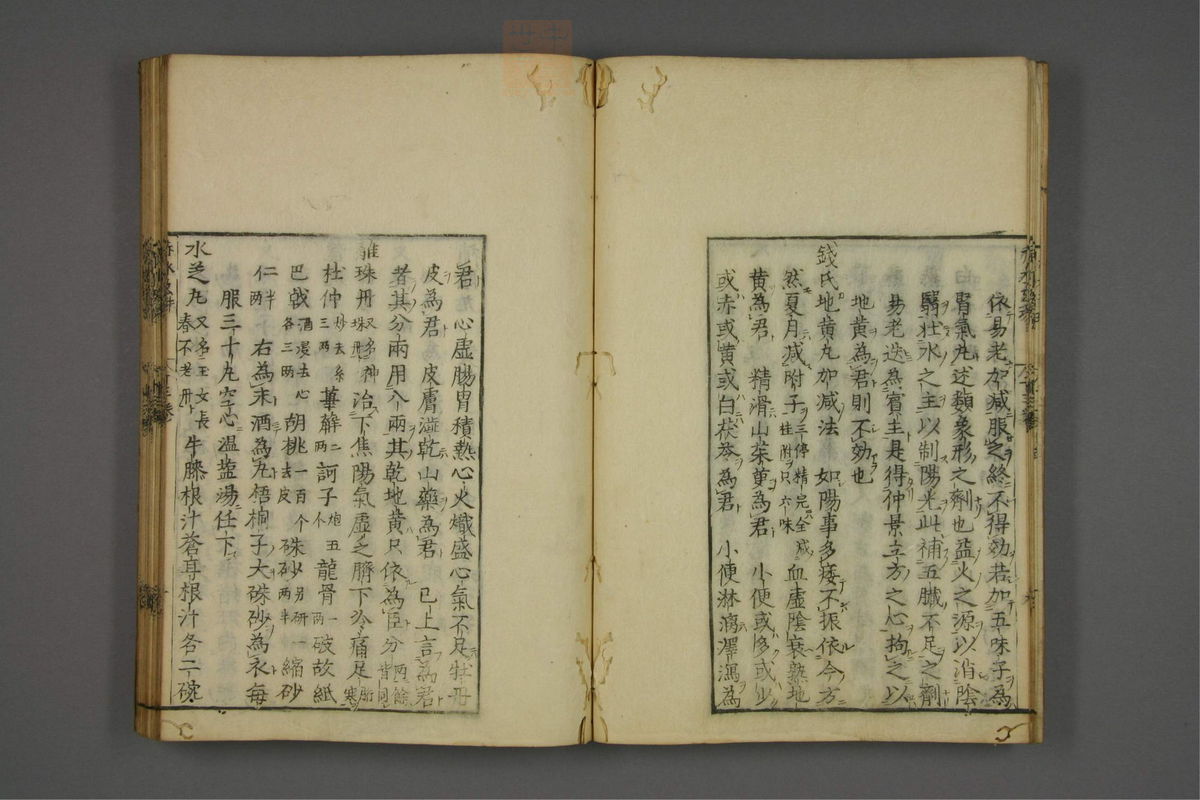 依易老加減服之終不得効若加五味子為
胃氣丸述類象形之劑也益火之源以消陰
翳壮水之主以制陽光此補五臟不足之劑
易老迭為賓主是得仲景立方之心拘之以
地黄為君則不効也
錢氏地黄丸加減法 如陽事多痿不振依今方
然夏月減附子三停精完全減桂附只六味血虛陰衰熟地
黄為君 精滑山茱萸為君 小便或多或少
或赤或黄或白茯苓為君 小便淋瀝澤瀉為
君 心虛腸胃積熱心火熾盛心氣不足牡丹
皮為君 皮膚澁乾山藥為君 已上言為君
者其分兩用八兩其乾地黄只依為臣分兩餘皆同
離珠丹又名神珠丹治下焦陽氣虛乏臍下冷痛足胻寒
杜仲炒去糸三兩萆薢二兩訶子炮五个龍骨一兩破故紙
巴戟酒浸去心各二兩胡桃一百个去皮朱砂另研一兩半縮砂
仁半兩右為末酒為丸梧桐子大硃砂為衣每
服三十丸空心温鹽湯任下
水芝丸又名玉女長春不老丹牛膝根汁蒼耳根汁各二碗